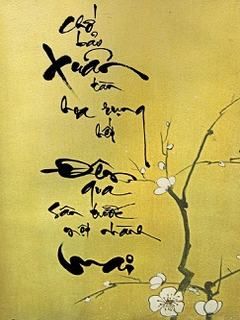 Chớ
bảo
Xuân
tàn
hoa rụng
hết
Đêm
qua
sân trước
một nhành
mai